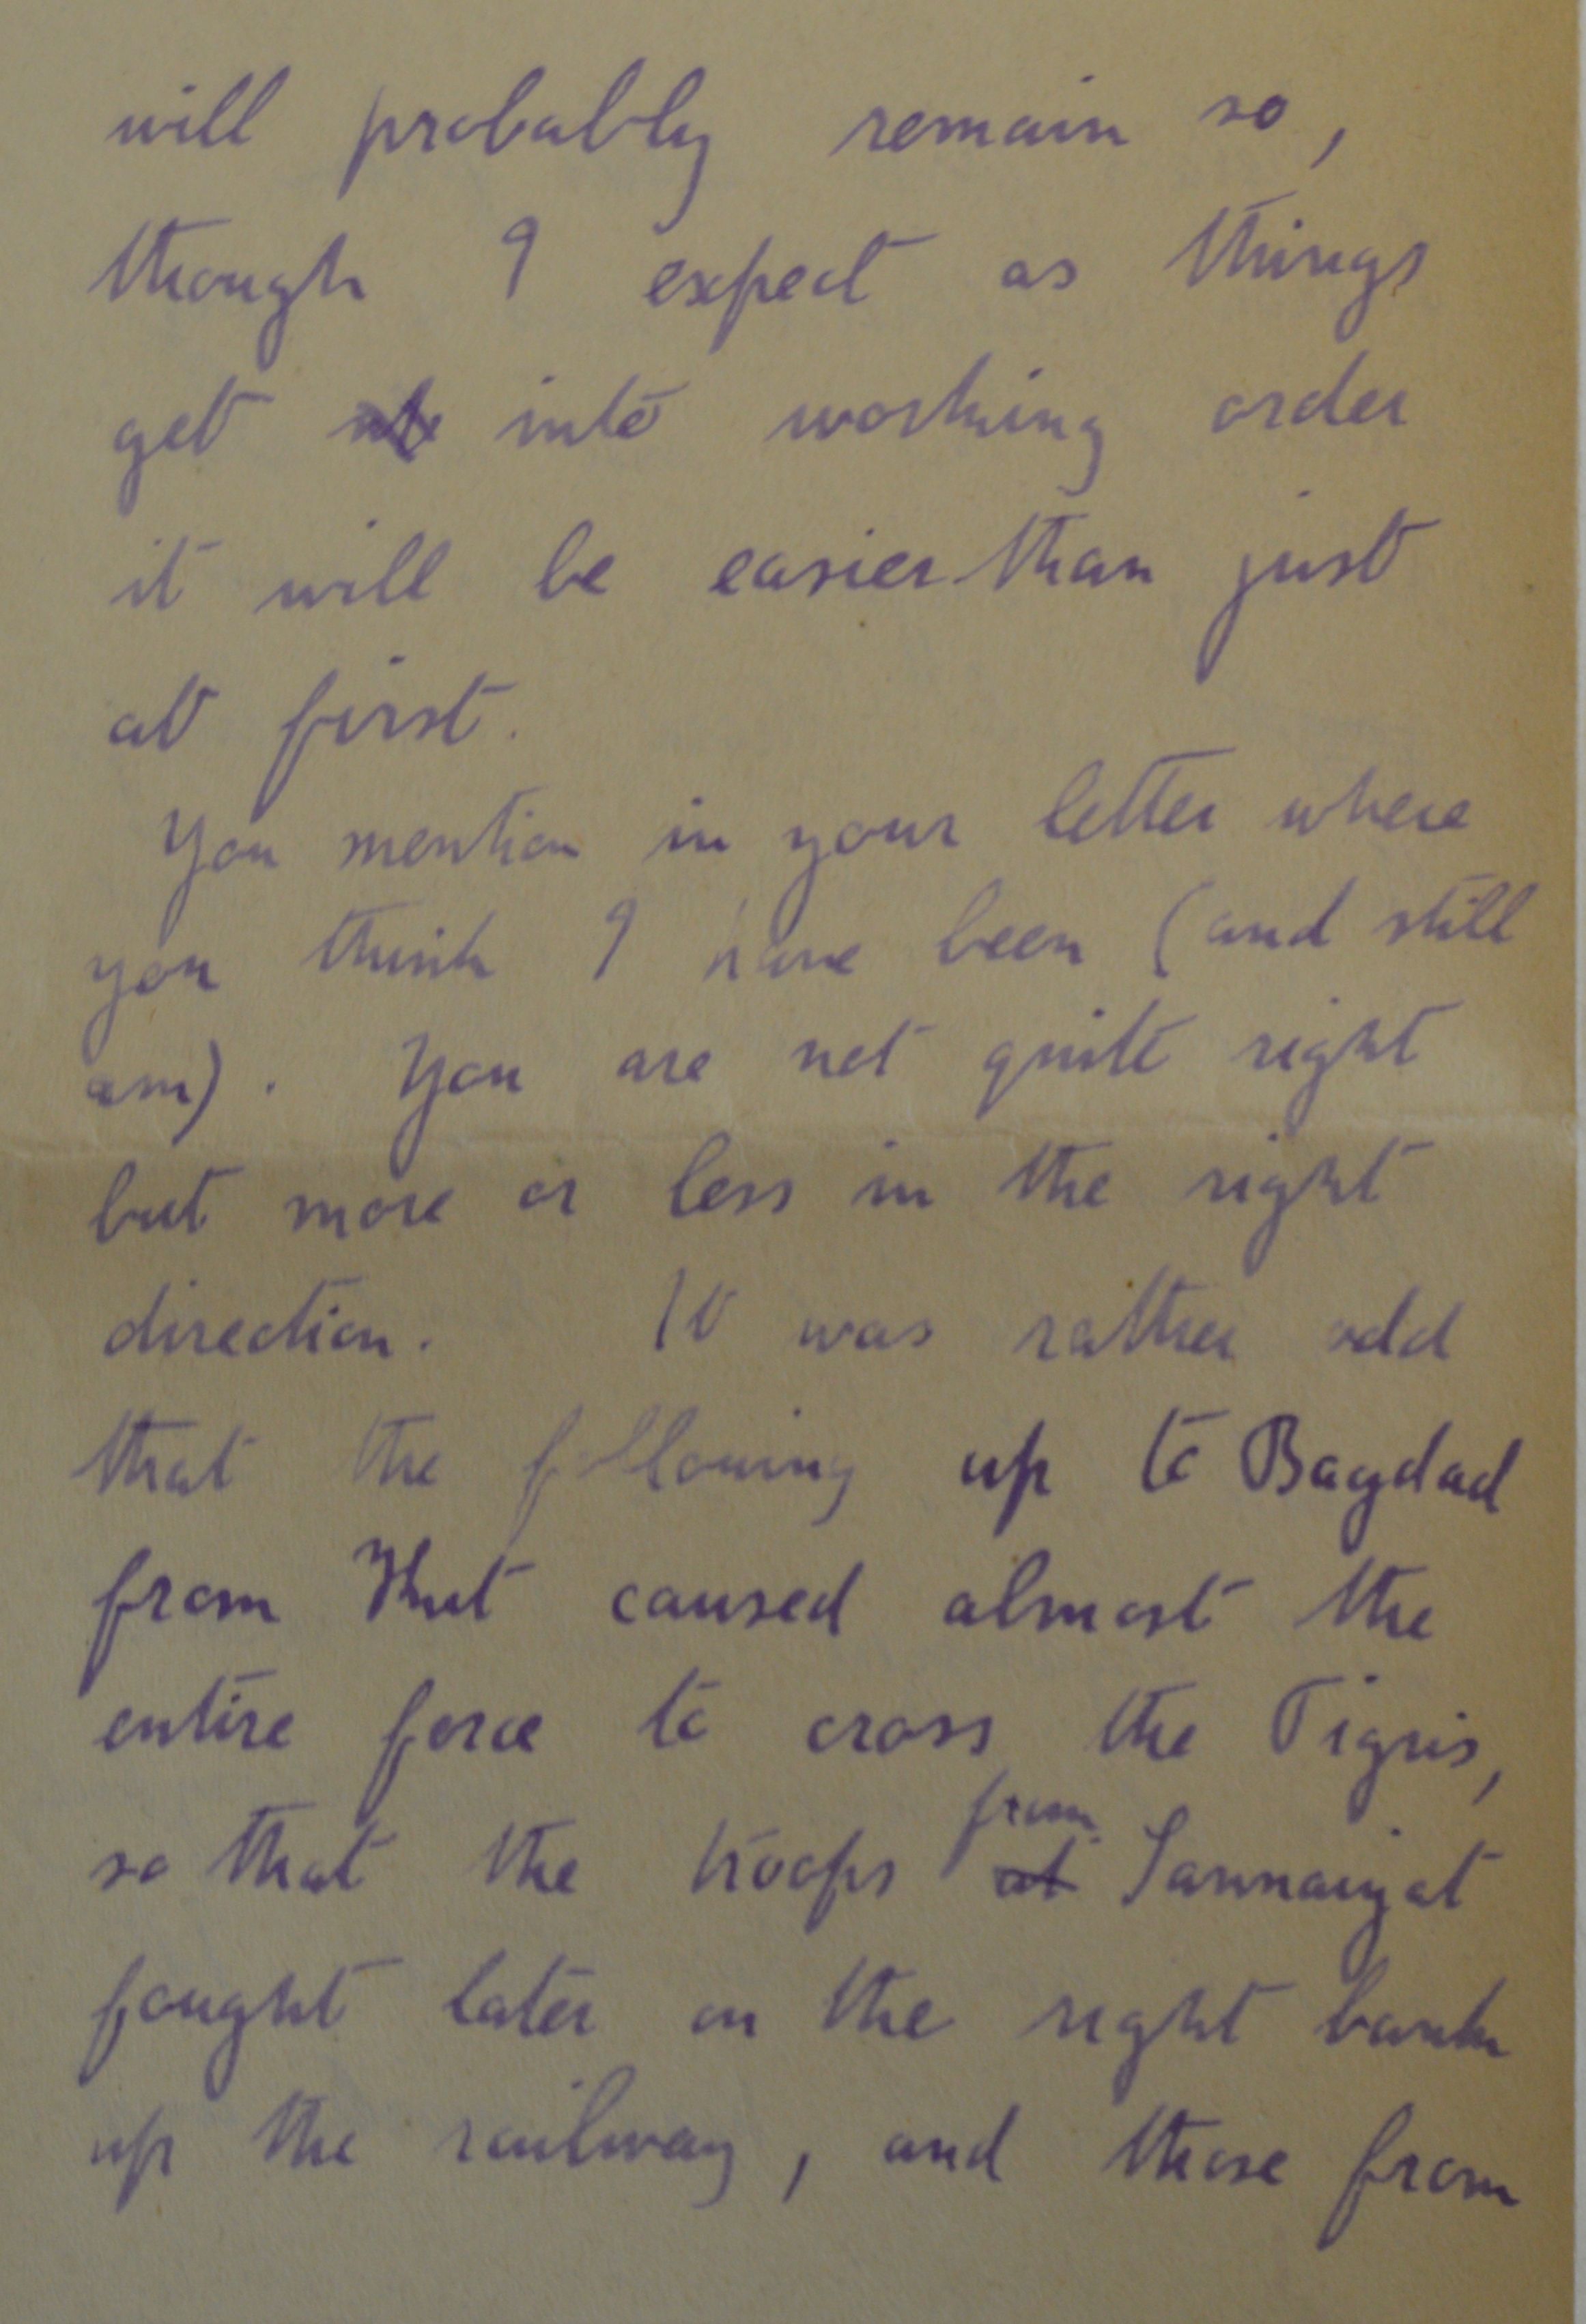 will probably remain so,
though I expect as things
get into working order
it will be easier than just
at first.
You mention in your letter where
you think I have been (and still
am). You are not quite right
but more or less in the right
direction. It was rather odd
that the following up to Bagdad
from Kut caused almost the
entire force to cross the Tigris,
from
so that the troops at Sannaiyat
fought later on the right bank
up the railway, and those from